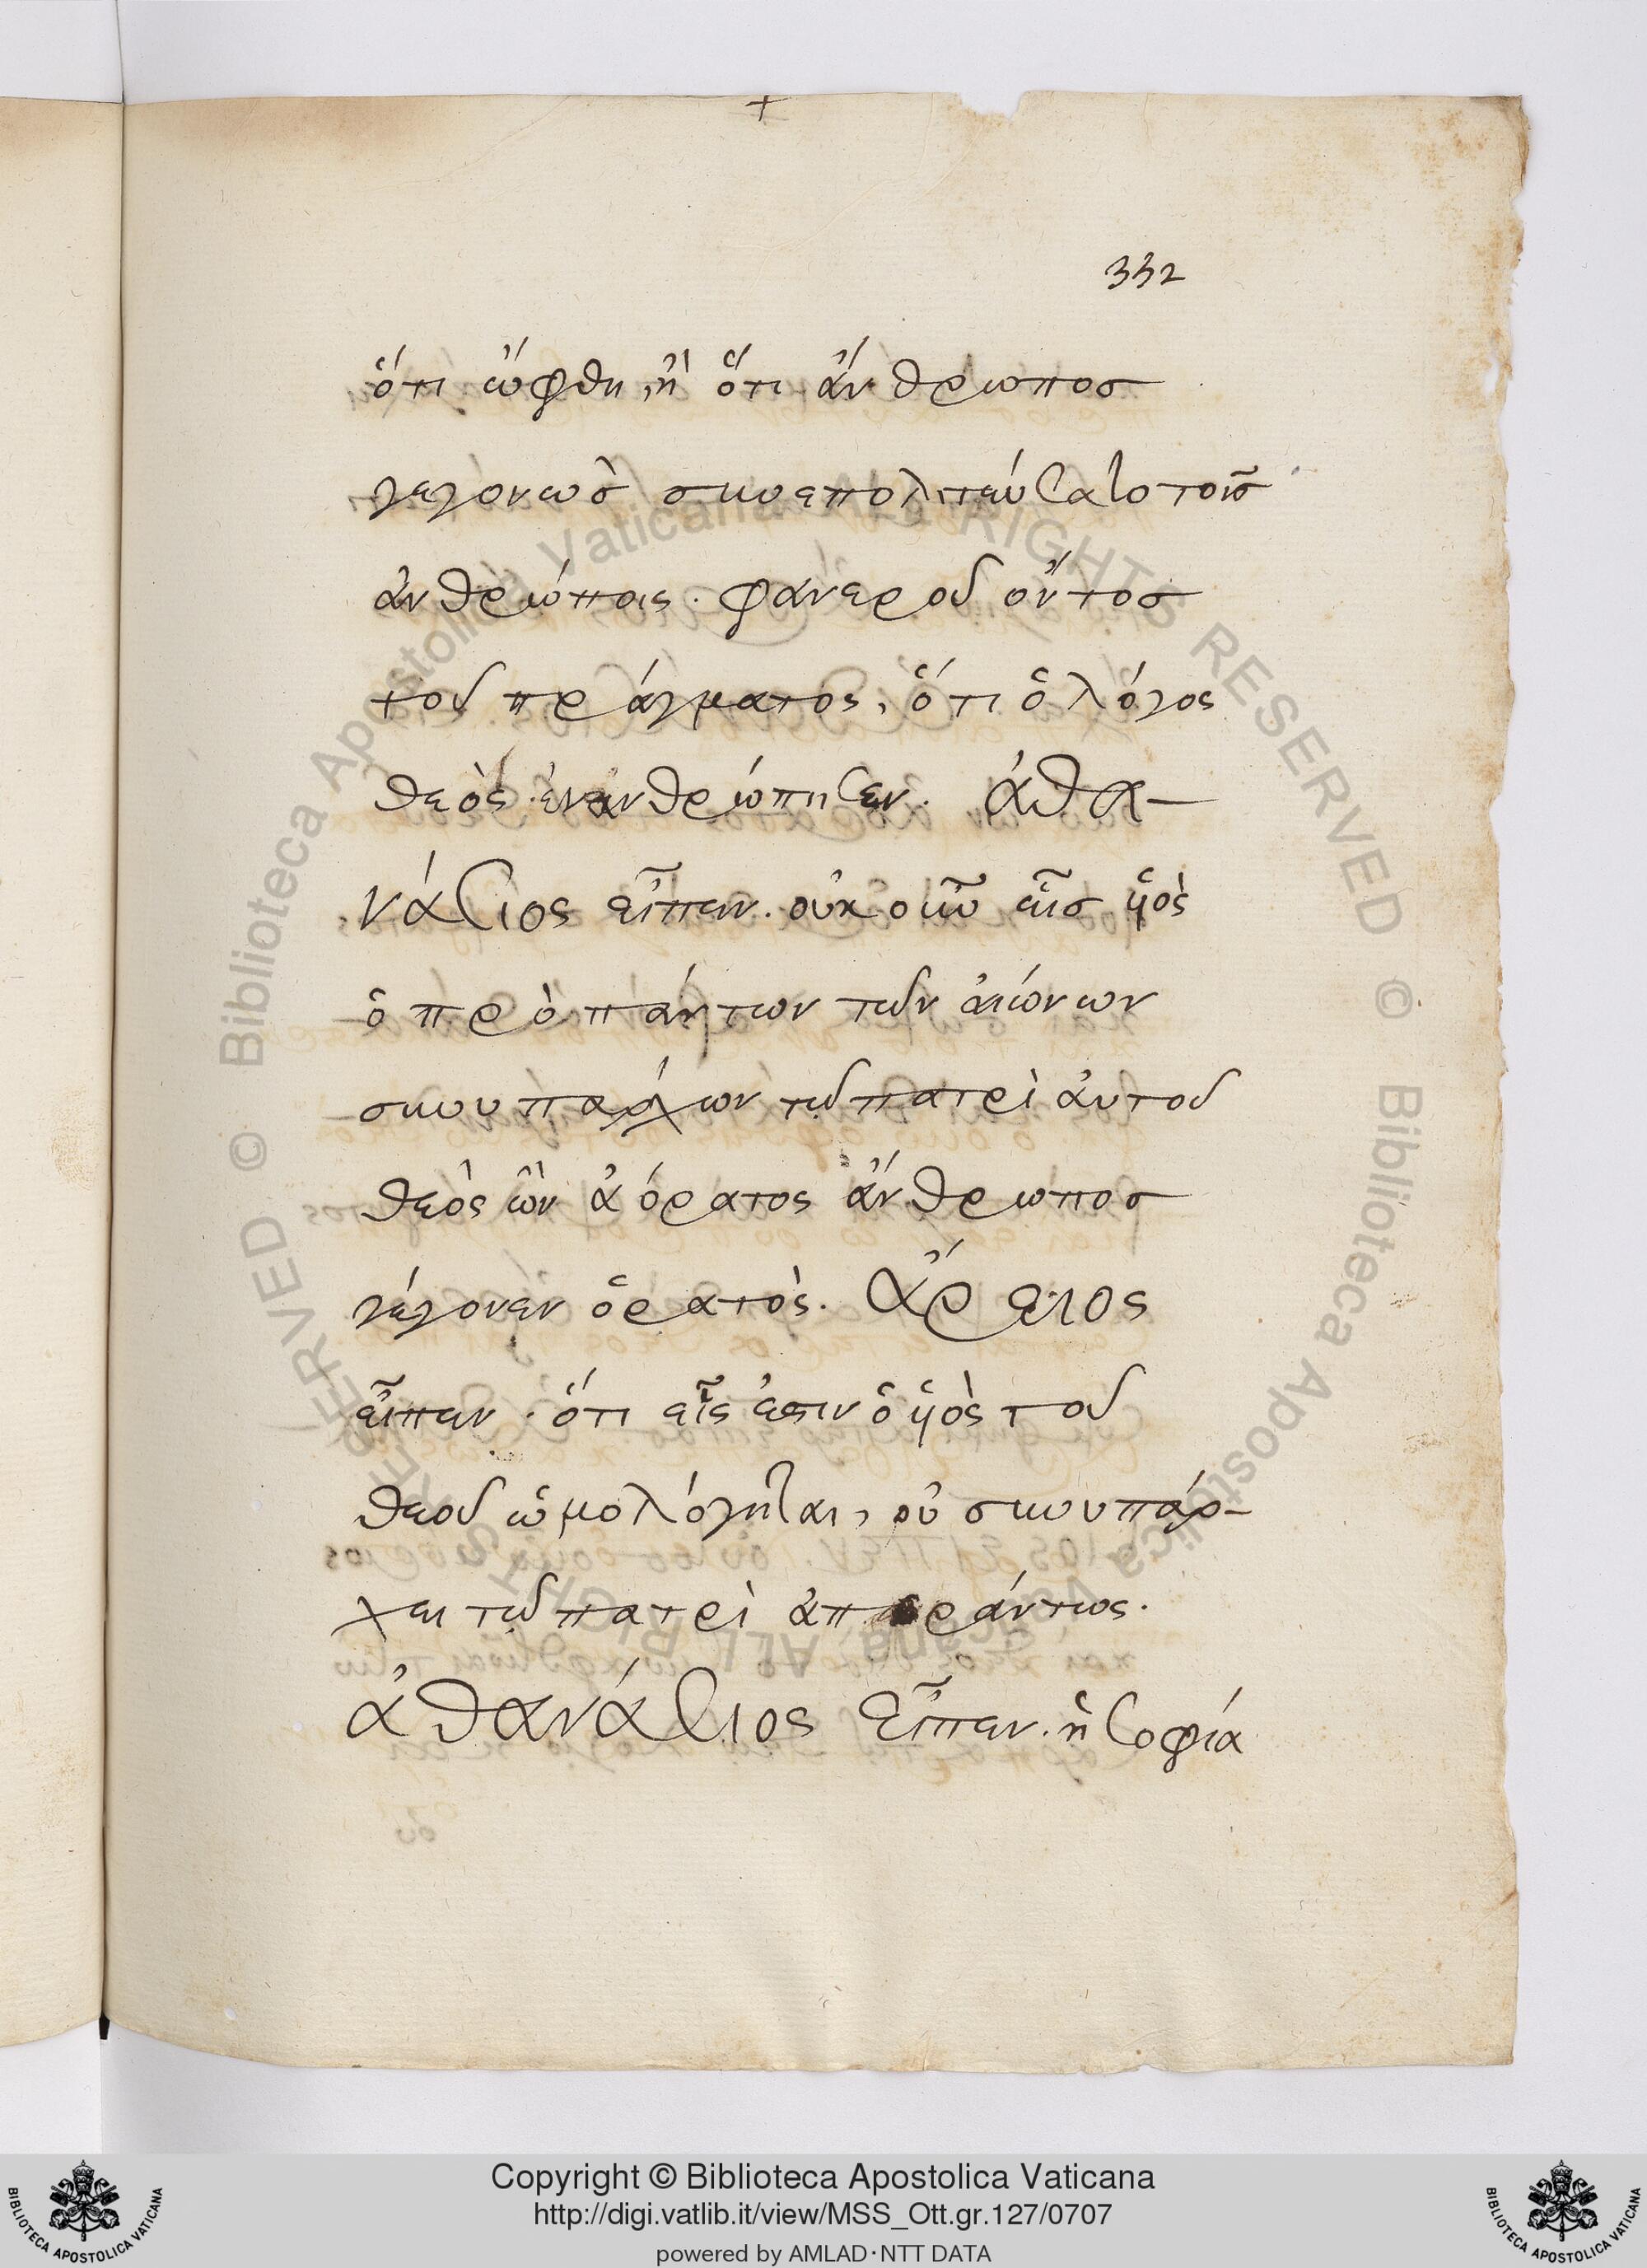 332
ὅτι ὤφθη, ἢ ὅτι ἄνθρωπος
γεγονὼς συνεπολιτεύσατο τοῖς
ἀνθρώποις. φανεροῦ ὄντος
τοῦ πράγματος, ὅτι ὁ λόγος
θεὸς ἐνανθρώπησεν. ἀθα-
νάσιος εἶπεν. οὐκ οῦν εἷς ὑιὸς
ὁ πρὸ πάντων τῶν αἰώνων
συνυπάρχων τῷ πατρὶ ἀυτοῦ
θεὸς ὢν ἀόρατος ἄνθρωπος
γέγονεν ὁρατός. Ἄρειος
εἶπεν. ὅτι εἷς ἐστιν ὁ ὑιὸς τοῦ
θεοῦ ὡμολόγηται, οὐ συνυπάρ-
χει τῷ πατρὶ ἀπεράντως.
ἀθανάσιος εἶπεν. ἡ σοφία
Copyright © Biblioteca Apostolica Vaticana
http://digi.vatlib.it/view/MSS_Ott.gr.127/0707
powered by AMLAD·NTT DATA
BIBLIOTECA APOSTOLICA VATICANA
BIBLIOTECA APOSTOLICA VATICANA